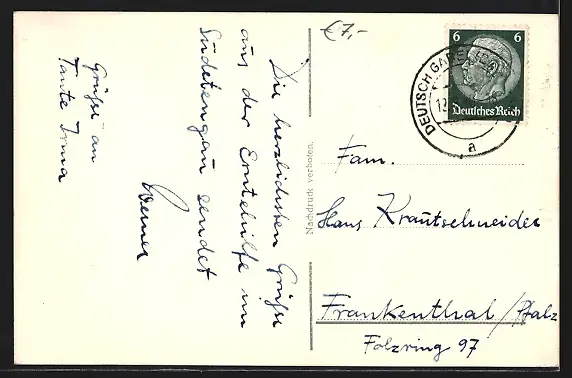 Die herzlichsten Grüße
aus der Erntehilfe im
Sudetengau sendet
Werner
Grüße an
Tante Irma
€7,-
Nachdruck verboten.
6 6
Deutsches Reich
DEUTSCH
a
Fam.
Hans Krautschneider
Frankenthal/Pfalz
Folzring 97